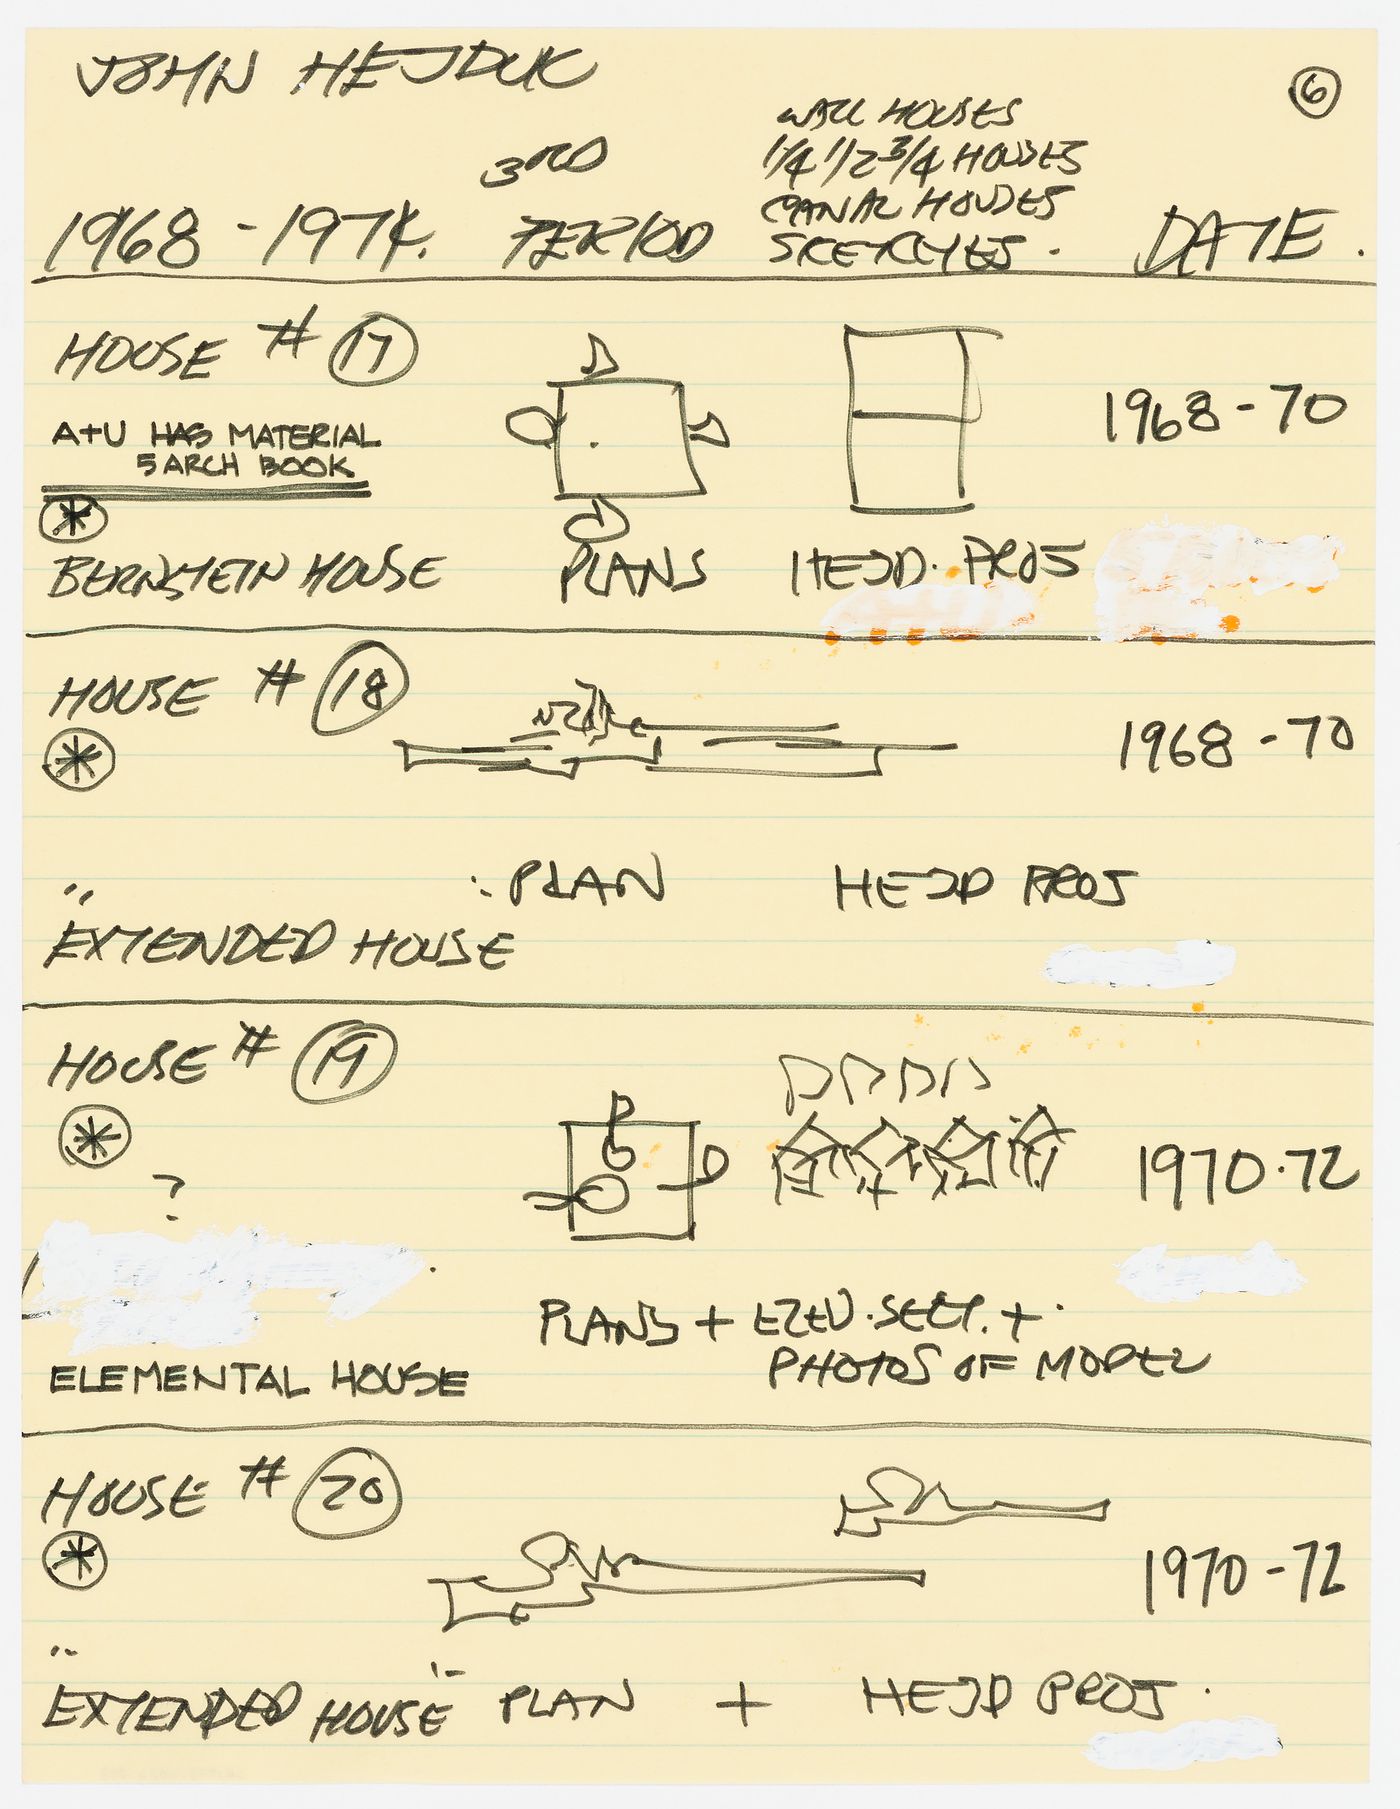 JOHN HEJDUK
6
WALL HOUSES
1/4 1/2 3/4 HOUSES
3RD
CANAL HOUSES
1968 - 1974. PERIOD SKETCHES. DATE.
HOUSE # 17
1968 - 70
A+U HAS MATERIAL
5 ARCH BOOK
*
BERNSTEIN HOUSE PLANS HEJD. PROJ
HOUSE # 18
1968 - 70
*
PLAN HEJD PROJ
"EXTENDED HOUSE"
HOUSE # 19
*
1970-72
?
PLANS + ELEV. SECT. +
PHOTOS OF MODEL
ELEMENTAL HOUSE
HOUSE # 20
*
1970 - 72
"EXTENDED HOUSE" PLAN + HEJD PROJ.